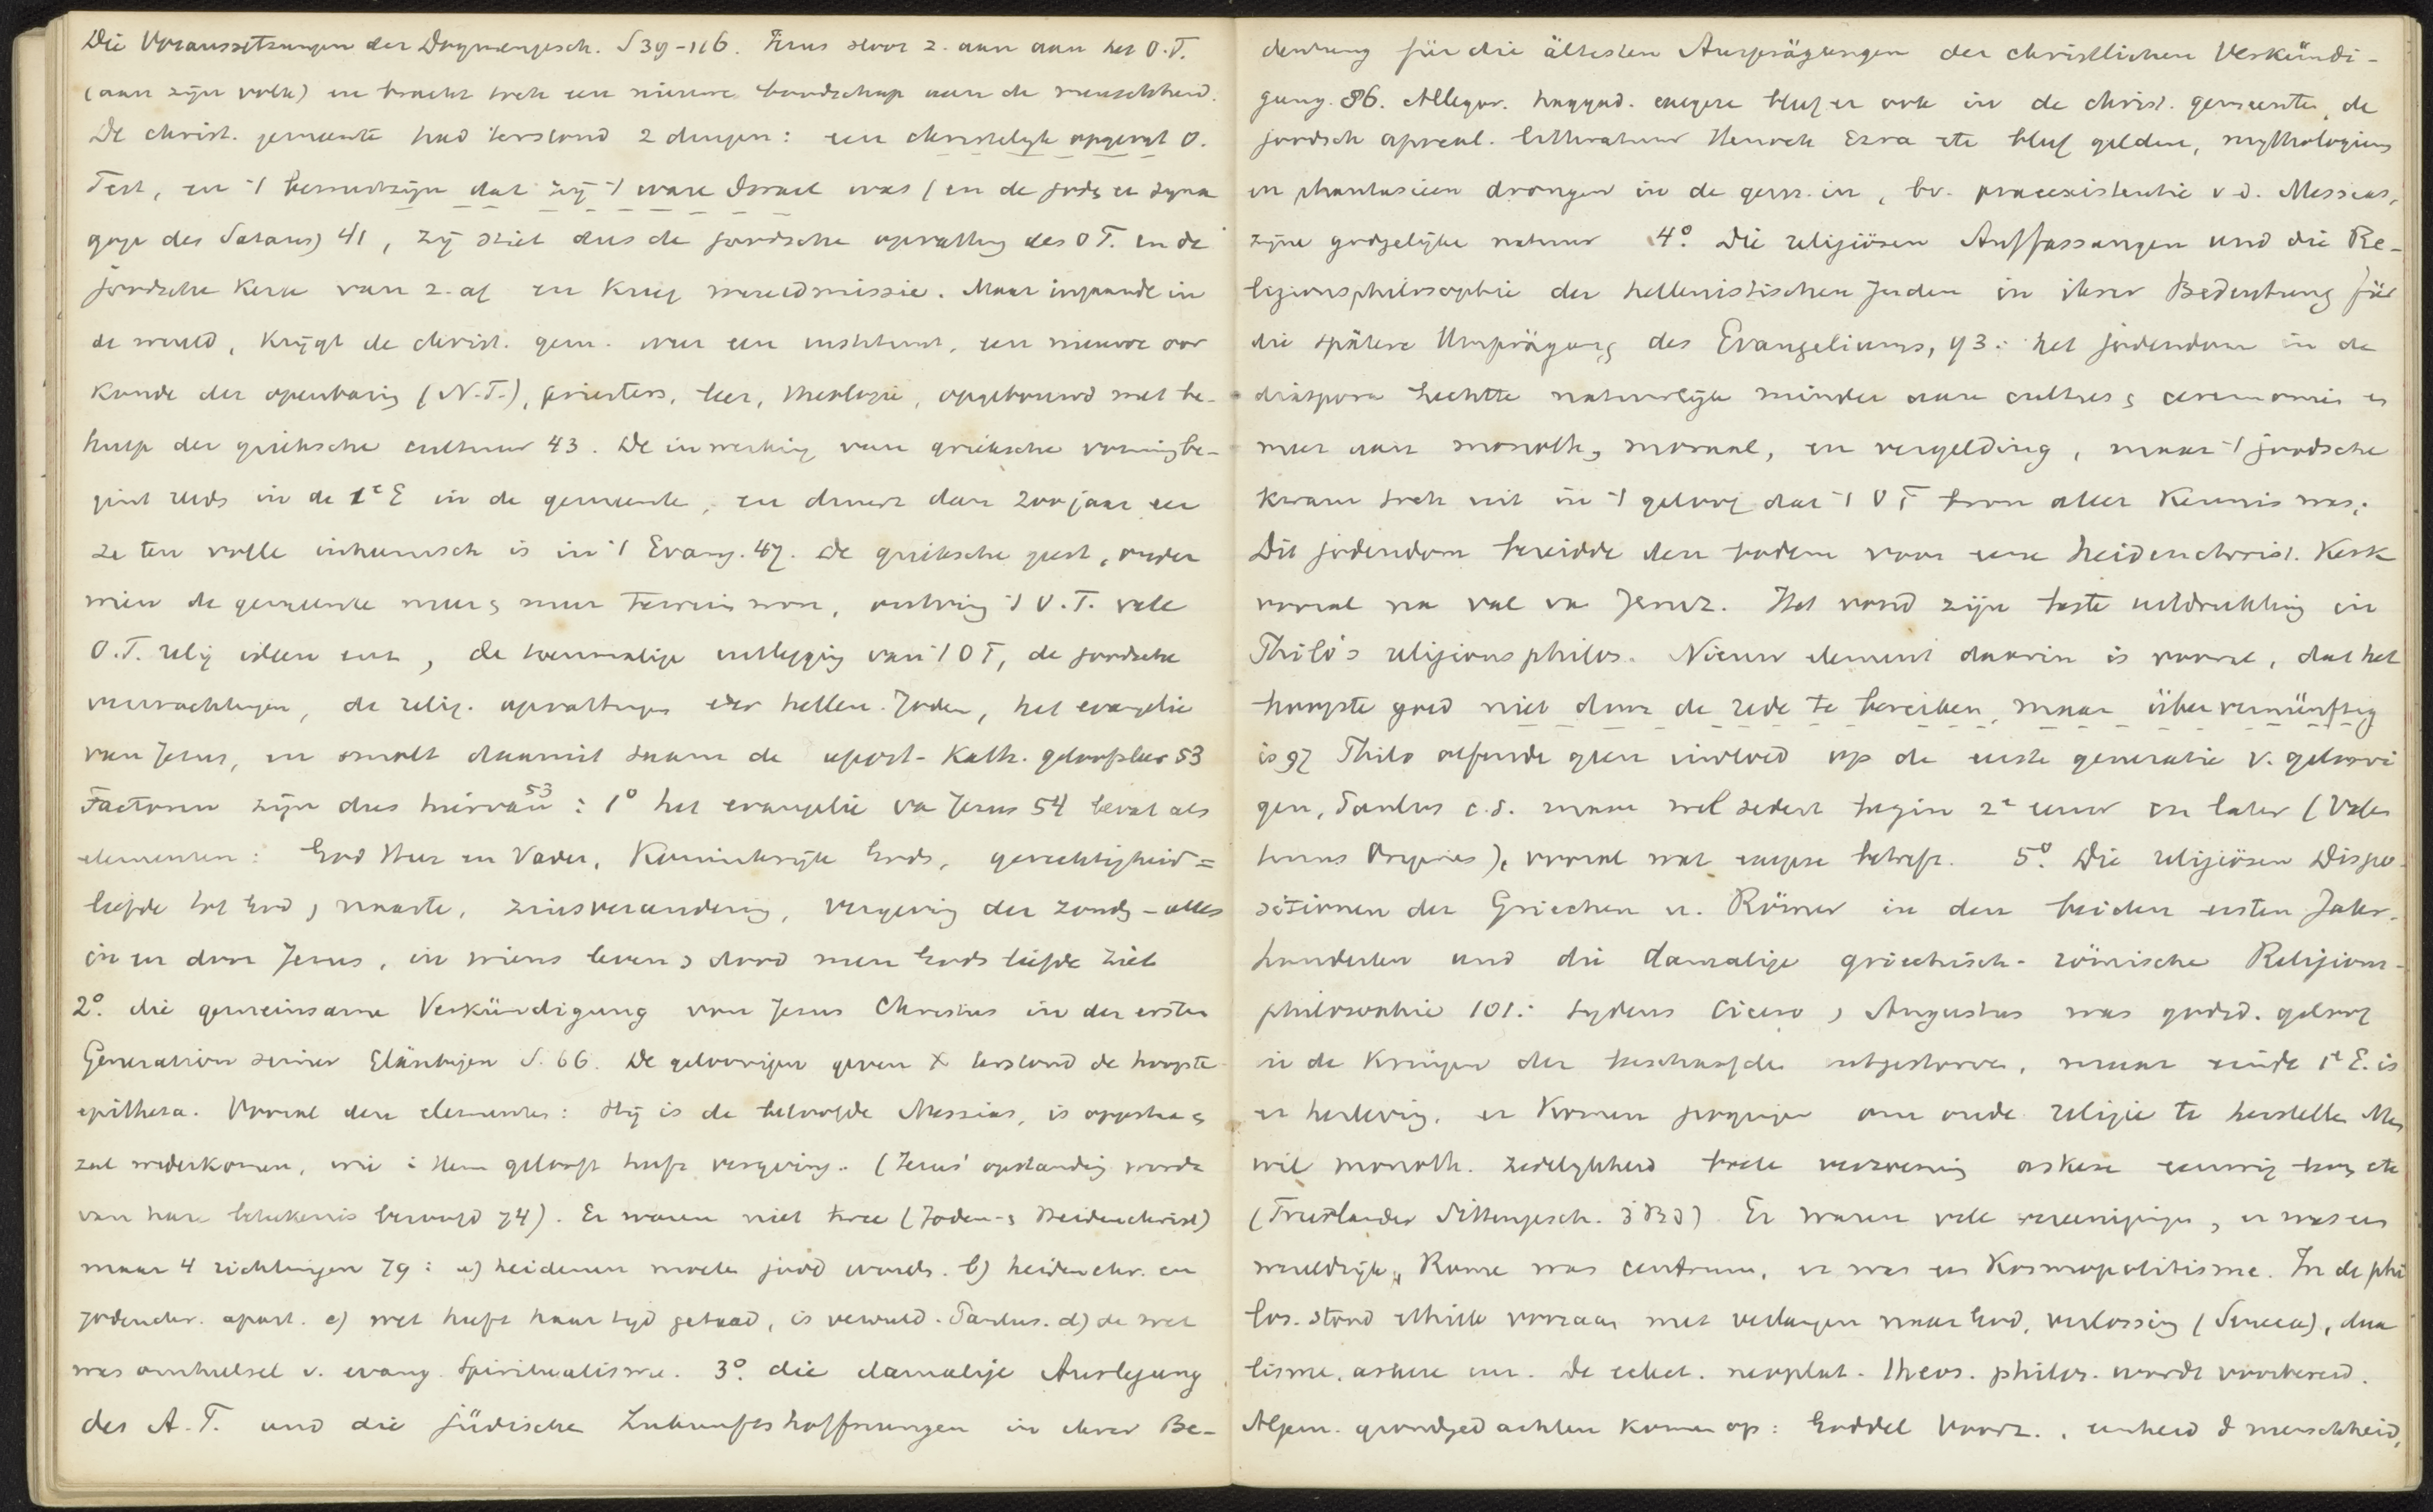 Die Voraussetzungen der Dogmengesch. S 39-116. Jezus sloot z. aan aan het O.T.
(aan zijn volk) en bracht toch een nieuwe boodschap aan de menschheid.
De christ. gemeente had terstond 2 dingen: een christelijk opgevat O.
Test, en 't bewustzijn dat zij 't ware Israel was (en de jods een syna
goge des Satans) 41, zij stiet dus de joodsche opvatting des O T. en de
joodsche Kerk van z. af en kreeg wereldmissie. Maar ingaande in
de wereld, krijgt de christ. gem. weer een instituut, een nieuwe oor
konde der openbaring (N.T.), priesters, leer, theologie, opgebouwd met be-
hulp der grieksche cultuur 43. De inwerking van grieksche vorming be-
gint reeds in de 1e E in de gemeente, en duurt dan 200 jaar eer
ze ten volle inheemsch is in 't Evang. 47. De grieksche geest, onder
wien de gemeente meer en meer terrein won, ontving 't O.T. vele
O.T. relig ideeen enz, de toenmalige uitlegging van 't O T, de joodsche
verwachtingen, de relig. opvattingen der hellen. Joden, het evangelie
van Jezus, en smolt daarmit saam de apost-Kath. geloofsleer 53
Factoren zijn dus hiervan 53: 1° het evangelie va Jezus 54 bevat als
elementen: God Heer en Vader, Koninkrijk Gods, gerechtigheid =
liefde tot God, naaste, zinsverandering, vergeving der zonds - alles
in en door Jezus, in wiens leven & dood men Gods liefde ziet
2°. die gemeinsame Verkündigung von Jesus Christus in der ersten
Generation seiner Gläubigen S. 66. De geloovigen geven X terstond de hoogste
epitheta. Vooral deze elementen: Hij is de beloofde Messias, is opgestaan &
zal wederkomen, wie i Hem gelooft heeft vergeving. (Jezus' opstanding wordt
van hare betekenis beroofd 74). Er waren niet twee (Joden- & Heidenchrist)
maar 4 richtingen 79: a) heidenen moeten jood worden. b) heidenchr. en
jodenchr. apart. c) wet heeft haar tijd gehad, is vervuld. Paulus. d) de wet
was omhulsel v. evang. Spiritualisme. 3° die damalige Auslegung
des A.T. und die jüdische Zukunftshoffnungen in ihrer Be-
deutung für die ältesten Ausprägungen der christlichen Verkündi-
gung. 86. Allegor. haggad. exegese bleef er ook in de christ. gemeente, de
joodsch apocal. litteratuur Henoch Ezra etc bleef gelden, mythologieen
en phantasieen drongen in de gem. in, bv. praeexistentie v d. Messias,
zijne goddelijke natuur 4°. Die religiösen Auffassungen und die Re-
ligionsphilosophie der hellenistischen Juden in ihrer Bedeutung für
die spätere Umprägung des Evangeliums, 93: het jodendom in de
diaspora hechtte natuurlijk minder aan cultus & ceremonien en
meer aan monoth, moraal, en vergelding, maar 't joodsche
kwam toch uit in 't geloof dat 't O T bron aller Kennis was.
Dit jodendom bereidde den bodem voor eene heidenchrist. Kerk
vooral na val va Jeruz. Het vond zijn beste uitdrukking in
Philo's religionsphilos. Nieuw element daarin is vooral, dat het
hoogste goed niet door de rede te bereiken, maar übervernünftig
is 97 Philo oefende geen invloed op de eerste generatie v. geloovi
gen, Paulus c.s. maar wel sedert begin 2e eeuw en later (Valen
tinus Origenes), vooral wat exegese betreft. 5°. Die religiösen Dispo-
sitionen der Griechen u. Römer in den beiden ersten Jahr-
hunderten und die damalige griechisch-römische Religions-
philosophie 101: tijdens Cicero, Augustus was godsd. geloof
in de Kringen der beschaafden uitgestorven, maar einde 1e E. is
er herleving. er komen pogingen om oude religie te herstellen Men
wil monoth. zedelijkheid boete verzoening askese eeuwig leven etc
(Friedlander Sittengesch. 3 Bd). Er waren vele vereenigingen, er was een
wereldrijk, Rome was centrum, er was een Kosmopolitisme. In de phi
los. stond ethiek vooraan met verlangen naar God, verlossing (Seneca), dua
lisme, askese enz. De eclect. neoplat. theos. philos. wordt voorbereid.
Algem. grondgedachten komen op: Goddel Voorz., eenheid d menschheid,